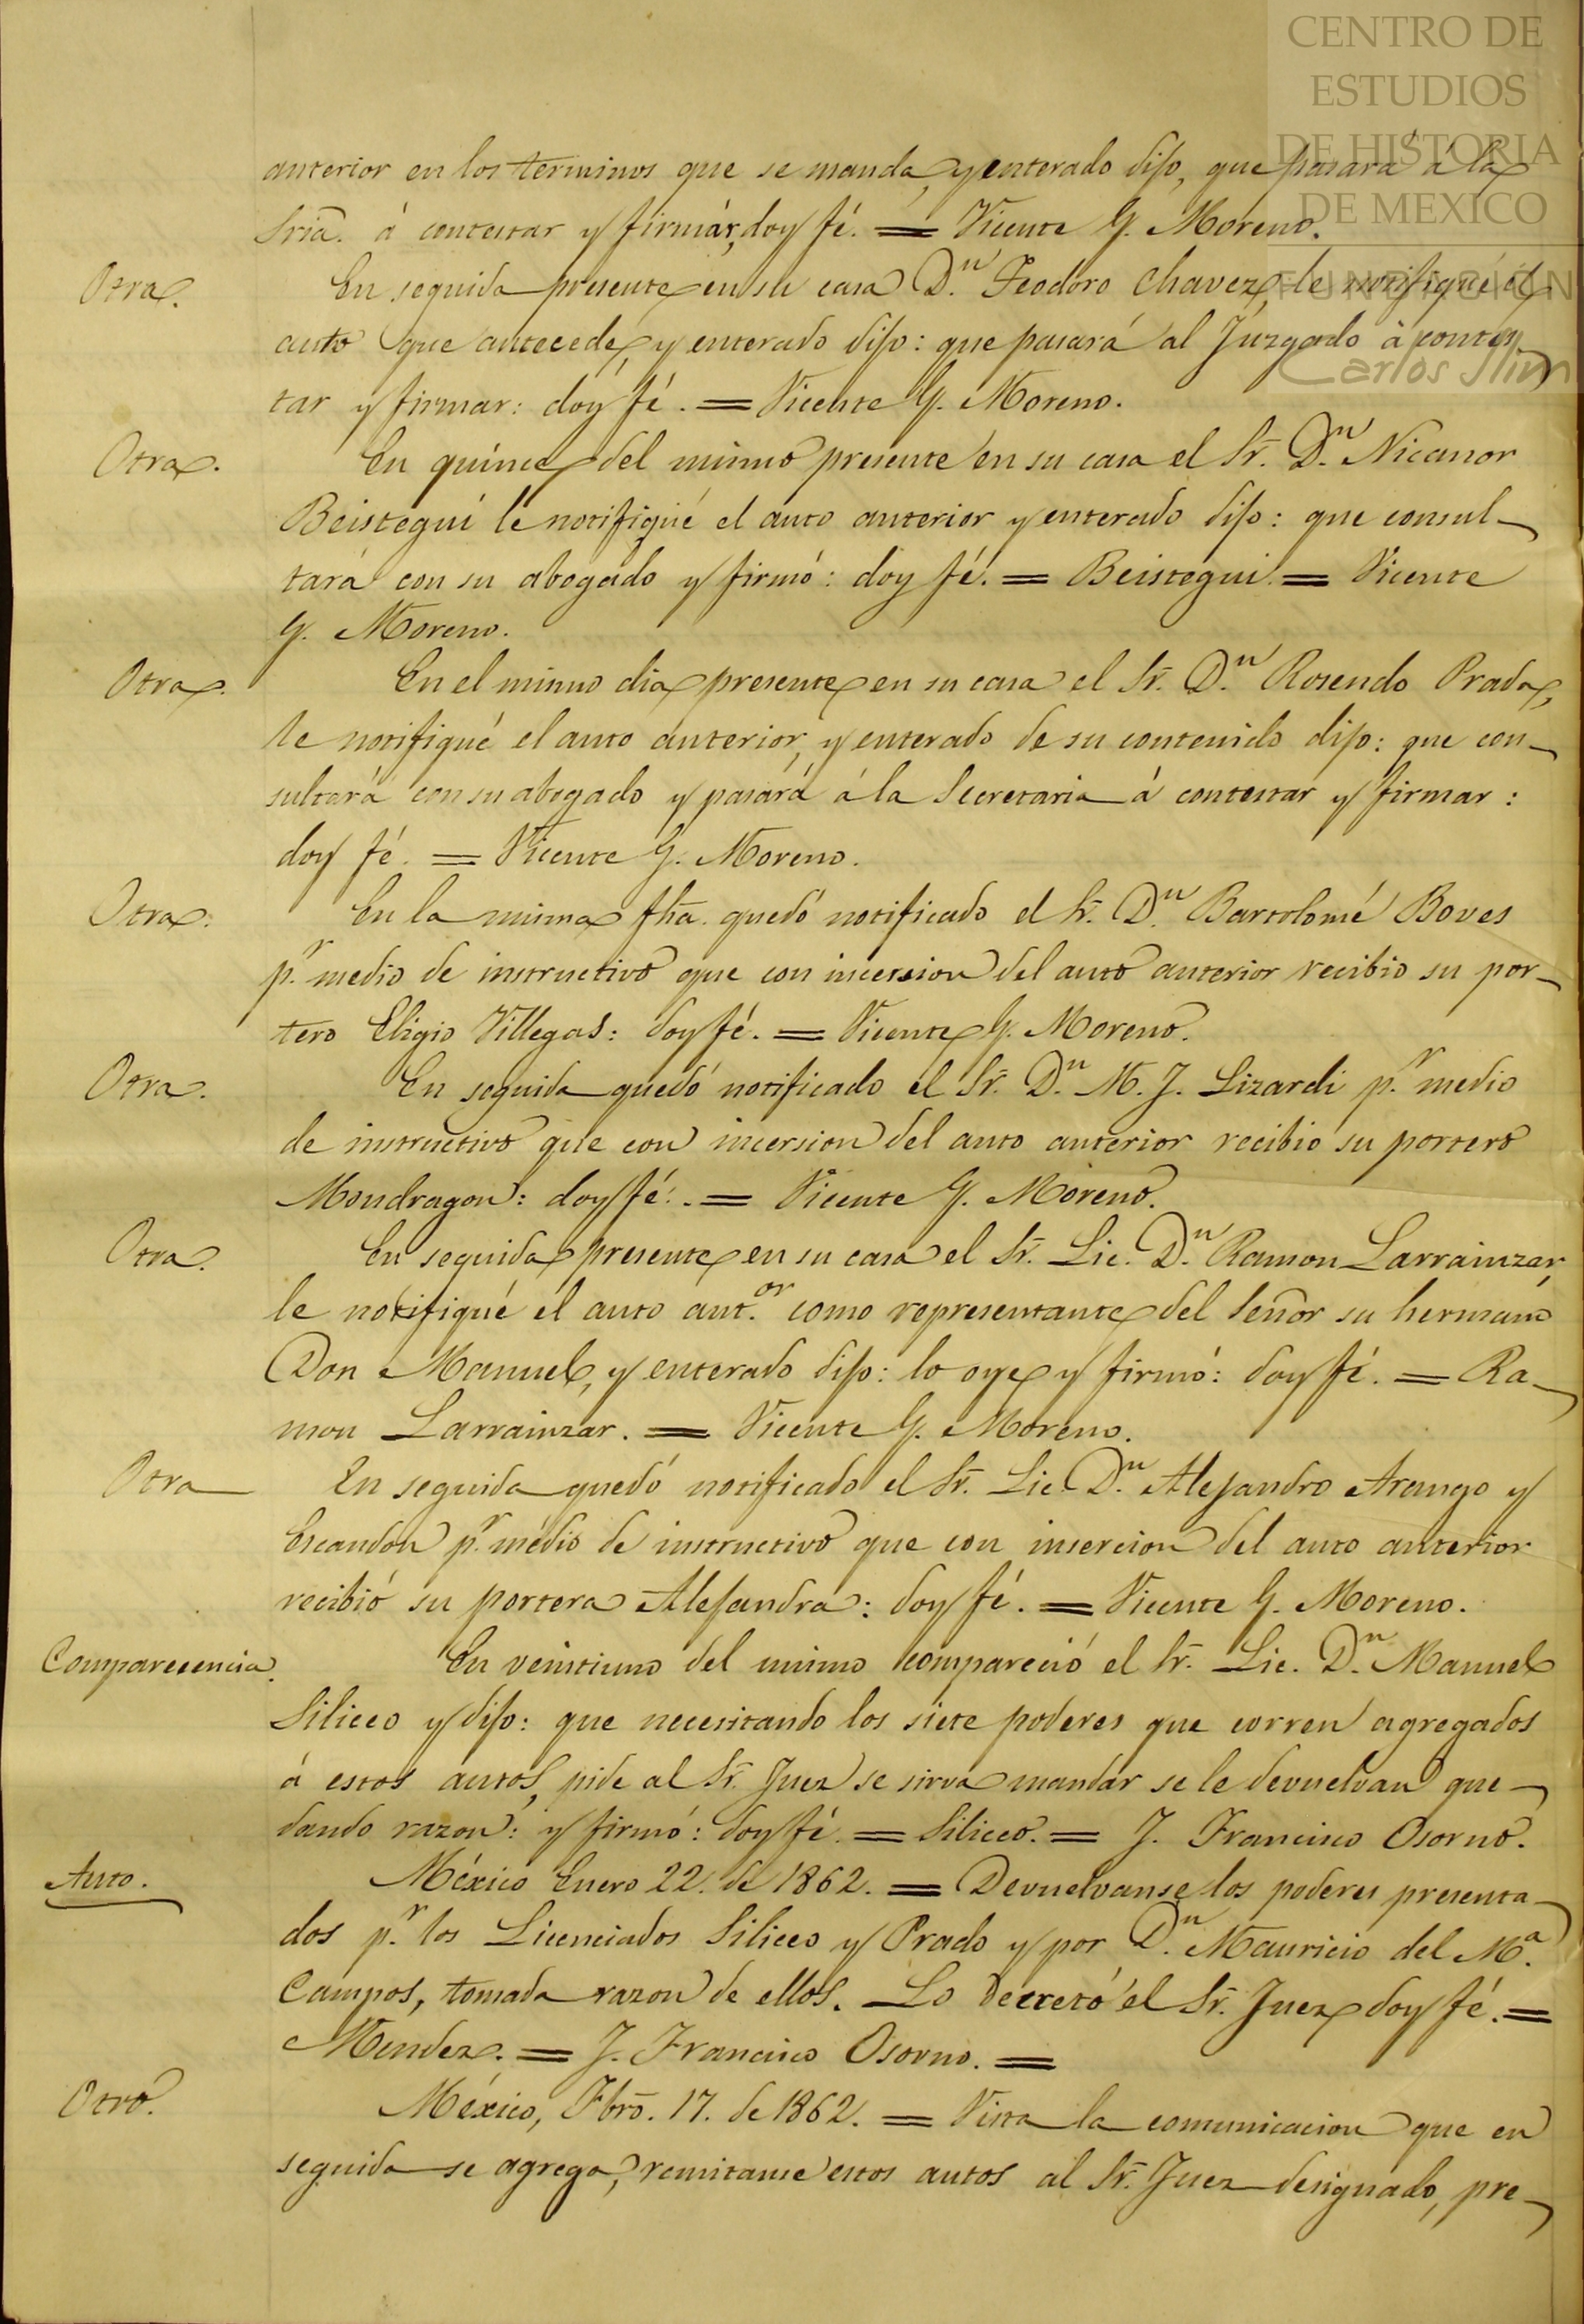 CENTRO DE
ESTUDIOS
DE HISTORIA
DE MEXICO
FUNDACIÓN
Carlos Slim
anterior en los terminos que se manda, y enterado dijo, que pasará á la
Sría. á contestar y firmár, doy fé. = Vicente G. Moreno.
Otra. En seguida presente en su casa D.n Teodoro Chavez, le notifiqué el
auto que antecede, y enterado dijo: que pasará al Juzgado à contes
tar y firmar: doy fé. = Vicente G. Moreno.
Otra. En quince del mismo presente en su casa el Sr. D.n Nicanor
Beistegui le notifiqué el auto anterior y enterado dijo: que consul-
tará con su abogado y firmó: doy fé. = Beistegui. = Vicente
G. Moreno.
Otra. En el mismo dia presente en su casa el Sr. D.n Rosendo Prado,
le notifiqué el auto anterior, y enterado de su contenido dijo: que con-
sultará con su abogado y pasará á la Secretaria á contestar y firmar:
doy fé. = Vicente G. Moreno.
Otra. En la misma fha. quedó notificado el Sr. D.n Bartolomé Boves
p.r medio de instructivo que con incersion del auto anterior recibio su por-
tero Eligio Villegas: doy fé. = Vicente G. Moreno.
Otra. En seguida quedó notificado el Sr. D.n M. J. Lizardi p.r medio
de instructivo que con incersion del auto anterior recibio su portero
Mondragon: doy fé. = Vicente G. Moreno.
Otra. En seguida presente en su casa el Sr. Lic. D.n Ramon Larrainzar,
le notifiqué el auto ant.or como representante del Señor su hermano
Don Manuel, y enterado dijo: lo oye y firmó: doy fé. = Ra-
mon Larrainzar. = Vicente G. Moreno.
Otra En seguida quedó notificado el Sr. Lic. D.n Alejandro Arango y
Escandon p.r medio de instructivo que con insercion del auto anterior
recibió su portera Alejandra: doy fé. = Vicente G. Moreno.
Comparecencia. En veintiuno del mismo compareció el Sr. Lic. D.n Manuel
Siliceo y dijo: que necesitando los siete poderes que corren agregados
á estos autos, pide al Sr. Juez se sirva mandar se le devuelvan que-
dando razon: y firmó: doy fé. = Siliceo. = J. Francisco Osorno.
Auto. México Enero 22. de 1862. = Devuelvanse los poderes presenta-
dos p.r los Licenciados Siliceo y Prado y por D.n Mauricio del M.a
Campos, tomada razon de ellos. Lo decretó el Sr. Juez doy fé. =
Mendez. = J. Francisco Osorno. =
Otro. México, Fbro. 17. de 1862. = Vista la comunicacion que en
seguida se agrega, remitanse estos autos al Sr. Juez designado, pre-